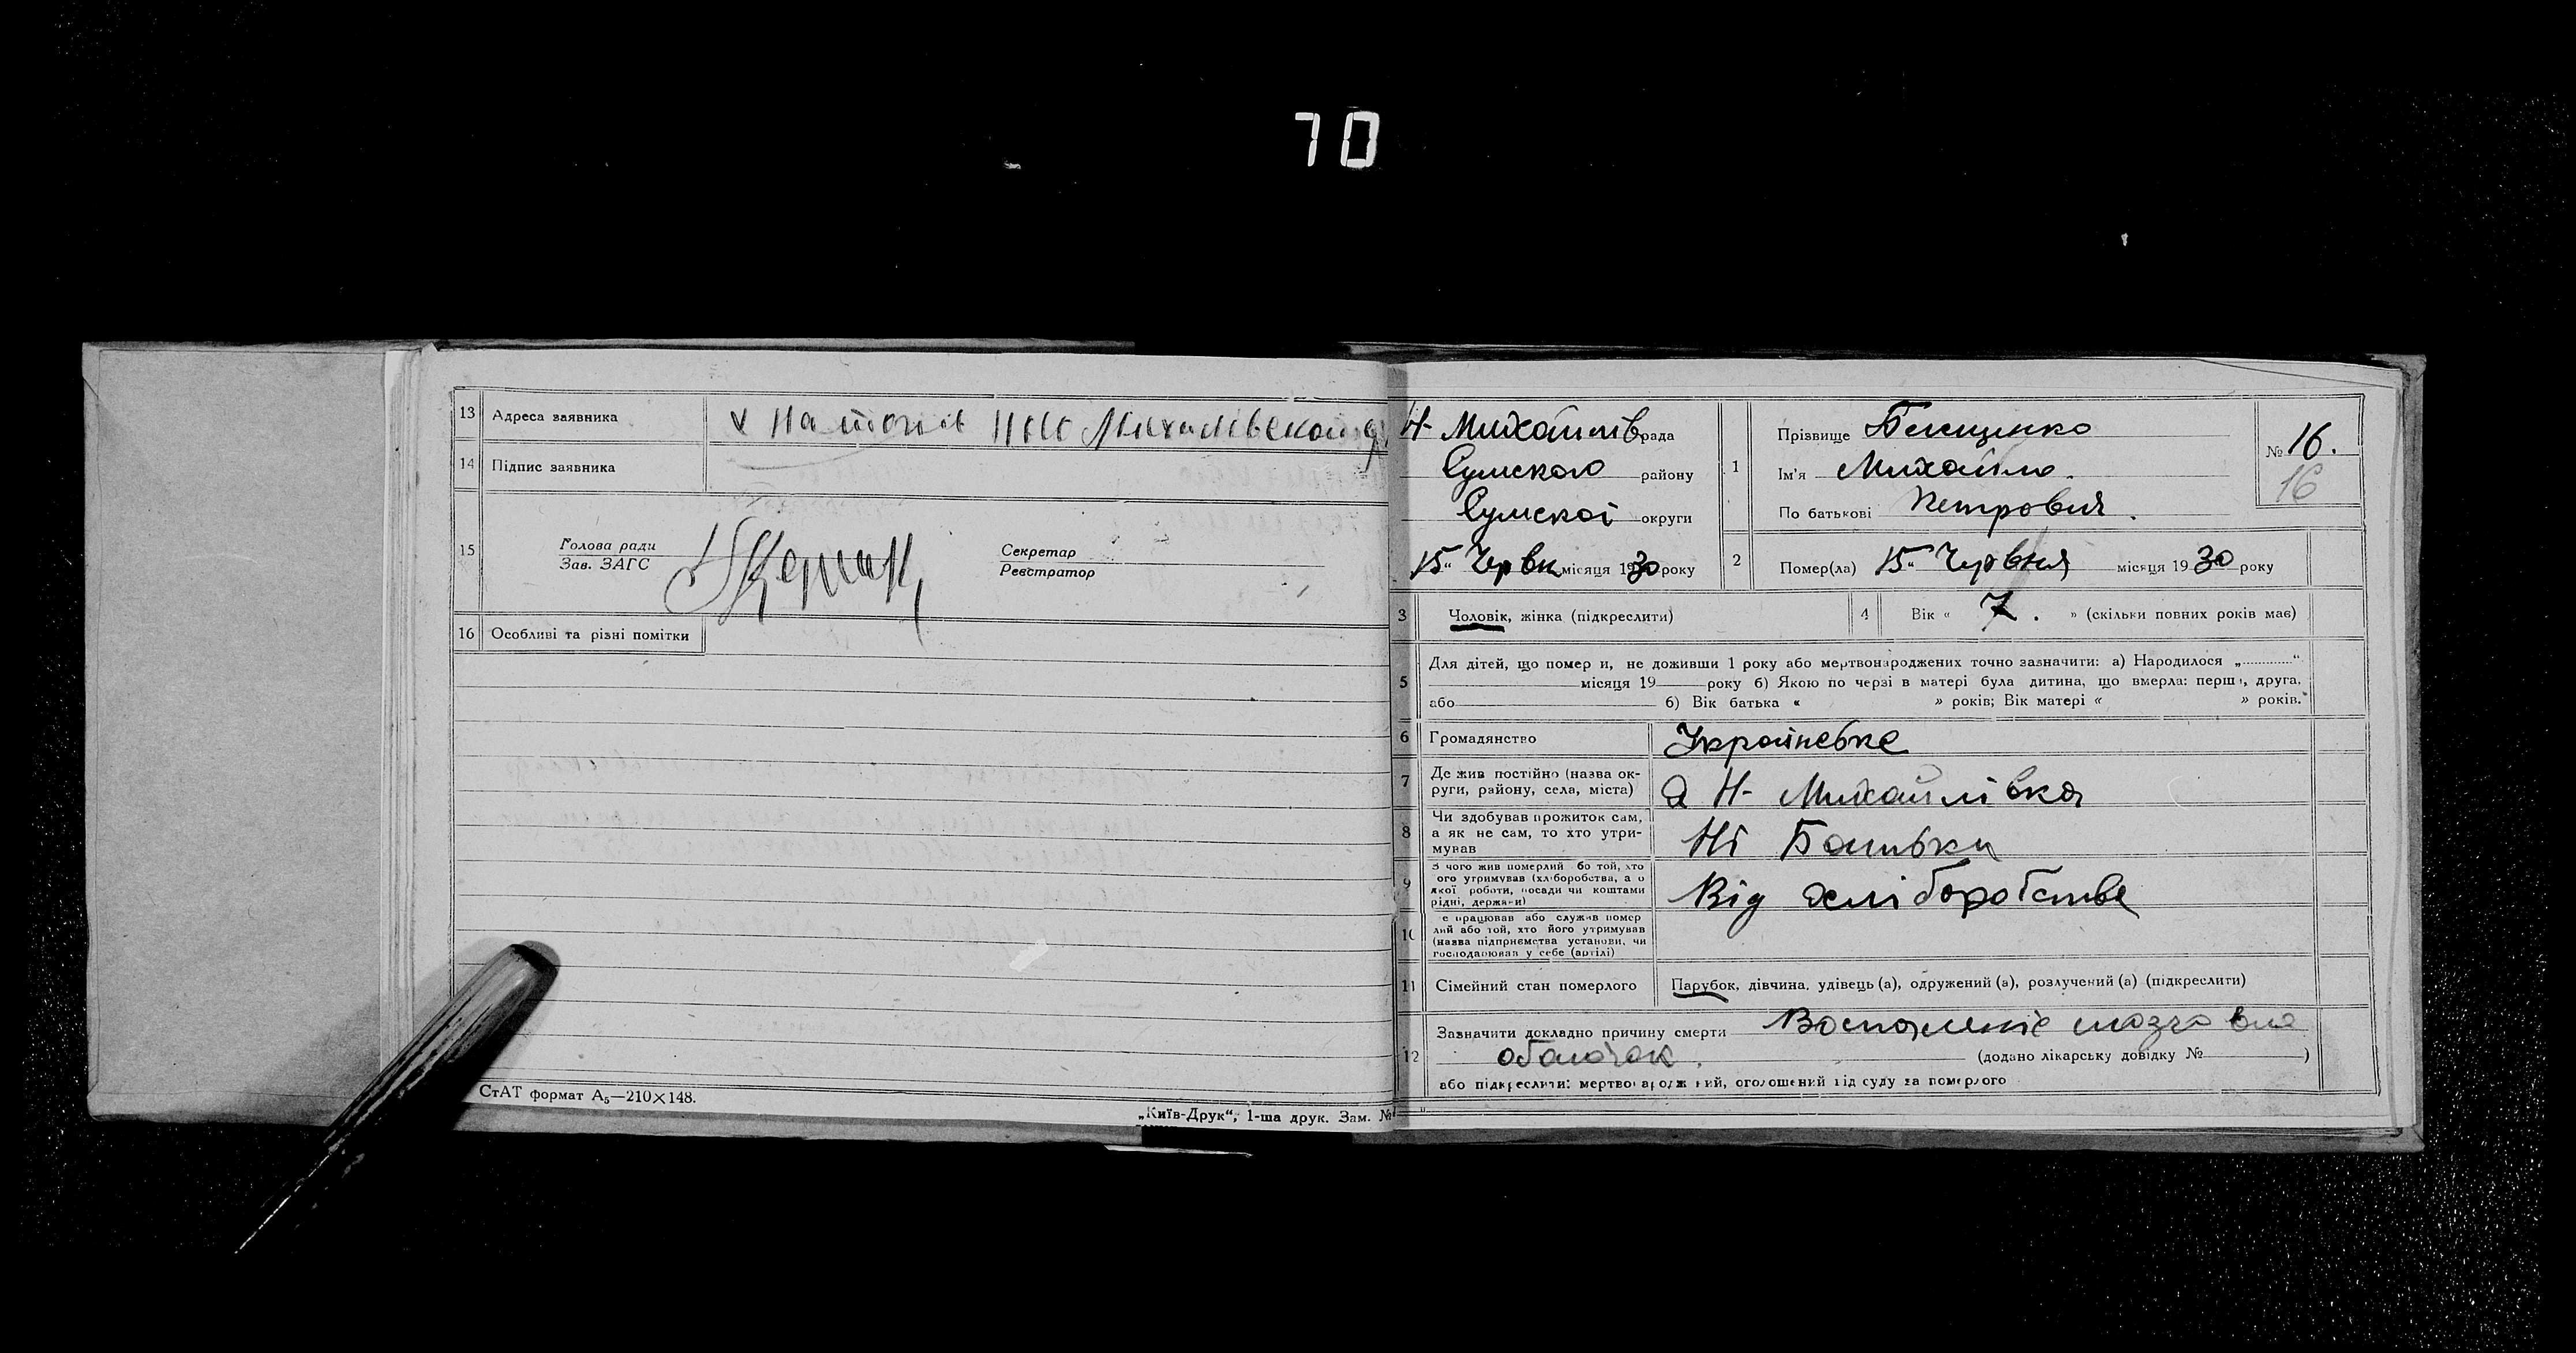 70
13 Адреса заявника
14 Підпис заявника
15 Голова ради
Зав. ЗАГС
Секретар
Реєстратор
16 Особливі та різні помітки
СтАТ формат А₅—210×148.
„Київ-Друк“, 1-ша друк. Зам. №
Н- Михайлів рада
Сумского району
Сумскої округи
15" Червн місяця 1930 року
1 Прізвище
Ім'я Михайло.
По батькові Петрович.
№ 16.
16
2 Помер(ла) 15" Червня місяця 1930 року
3 Чоловік, жінка (підкреслити)
4 Вік « 7. » (скільки повних років має)
5 Для дітей, що помер и, не доживши 1 року або мертвонароджених точно зазначити: а) Народилося „..........“
місяця 19 року б) Якою по черзі в матері була дитина, що вмерла: перша, друга,
або б) Вік батька « » років; Вік матері « » років.
6 Громадянство Українське
7 Де жив постійно (назва ок-
руги, району, села, міста) Н- Михайлівка
8 Чи здобував прожиток сам,
а як не сам, то хто утри-
мував Ні Батьки
9 З чого жив померлий бо той, хто
ого утримував (хліборобства, а о
якої роботи, посади чи коштами
рідні, держави) Від хліборобства
10 е працював або служив помер
лий або той, хто його утримував
(назва підприємства установи, чи
господарював у себе (артілі)
11 Сімейний стан померлого Парубок, дівчина, удівець (а), одружений (а), розлучений (а) (підкреслити)
12 Зазначити докладно причину смерти Воспаленіе
оболочок. (додано лікарську довідку № )
або підкреслити: мертвонароджений, оголошений від суду за померлого